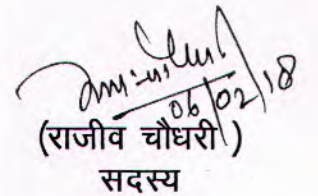 06/02/18
(राजीव चौधरी)
सदस्य